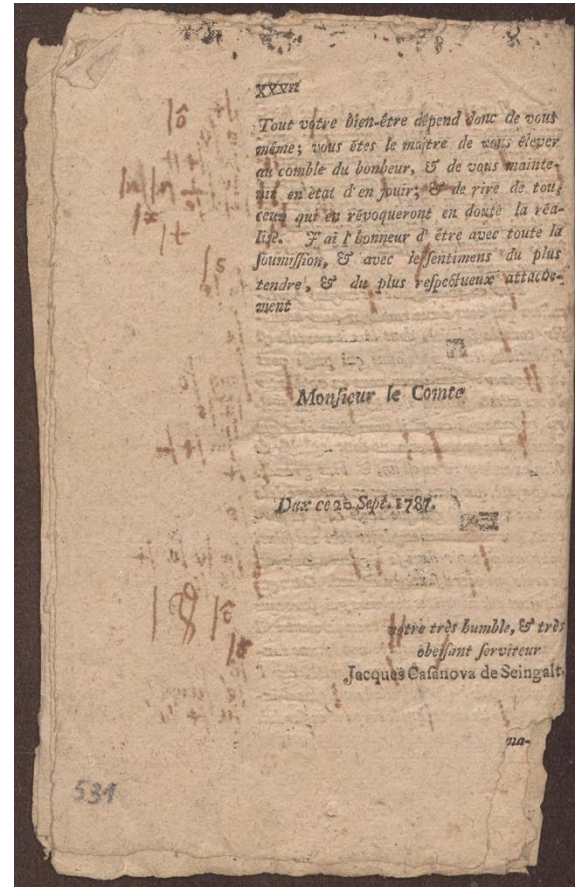 XXXVII
Tout votre bien-être dépend donc de vous
même; vous êtes le maître de vous élever
au comble du bonheur, & de vous mainte-
nir en état d'en jouir; & de rire de tous
ceux qui en révoqueront en doute la réa-
lise. J'ai l'honneur d'être avec toute la
soumiſſion, & avec le ſentimens du plus
tendre, & du plus reſpectueux attache-
ment
Monſieur le Comte
Dux ce 20 Sept. 1787.
votre très humble, & très
obeiſant ſerviteur
Jacques Caſanova de Seingalt.
ma-
531